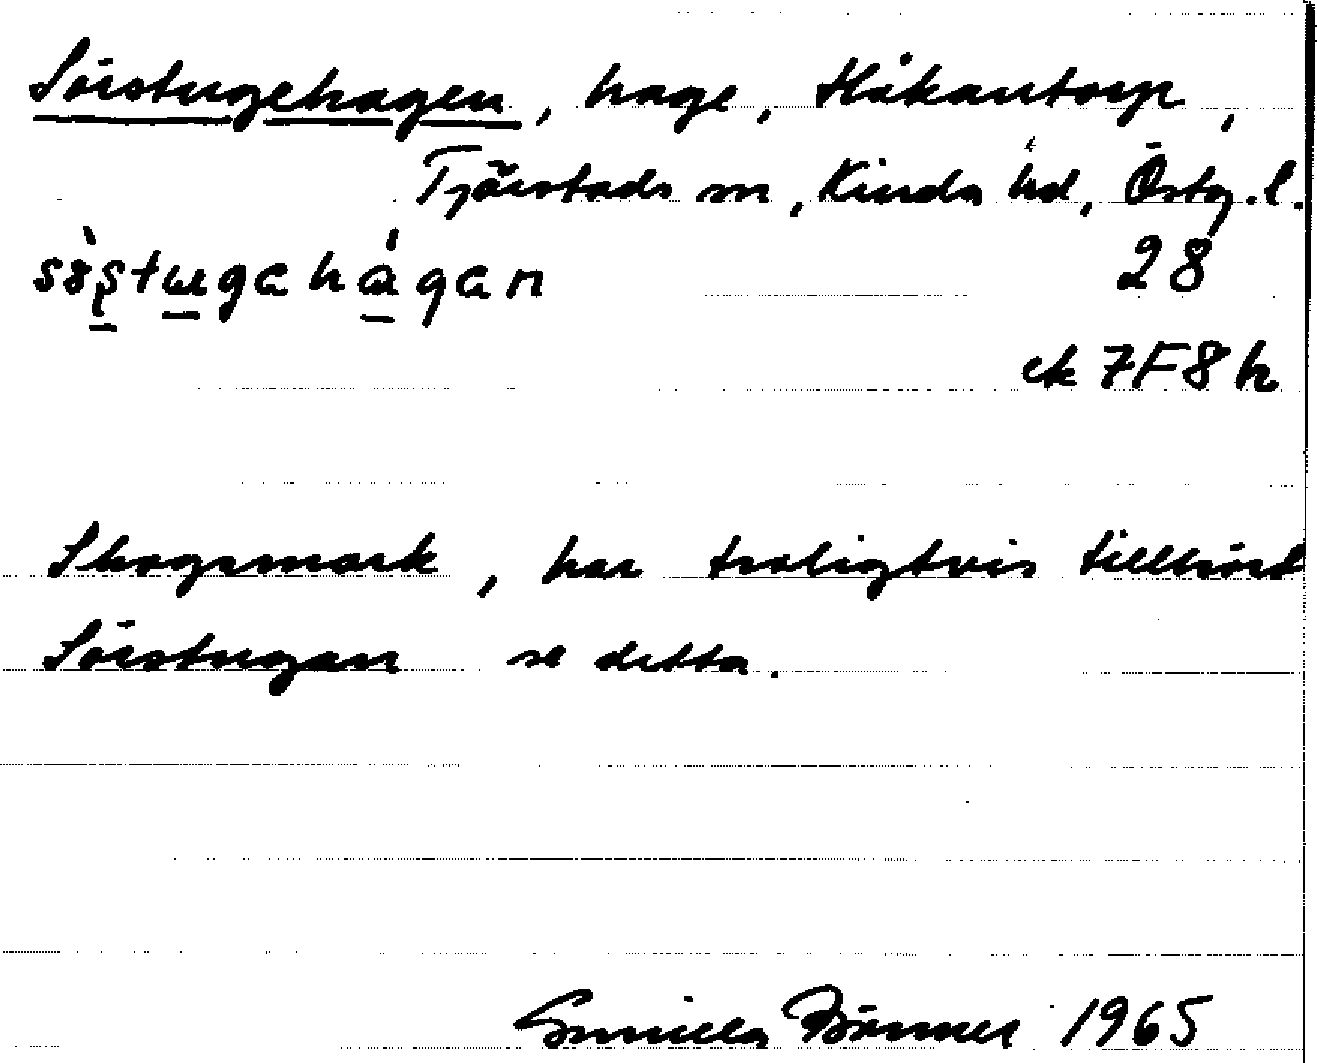 Sörstugehagen, hage, Håkantorp,
Tjärstads sn, Kinda hd, Östg. l.
28
ek 7F8h
Skogsmark, har troligtvis tillhört
Sörstugan se detta.
Gunilla 1965